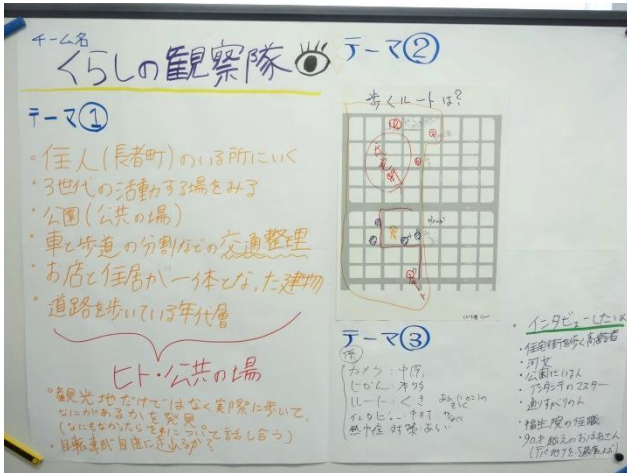 チーム名
くらしの観察隊
テーマ①
・住人(長者町)のいる所にいく
・3世代の活動する場をみる
・公園(公共の場)
・車と歩道の分割などの交通整理
・お店と住居が一体となった建物
・道路を歩いている年代層
ヒト・公共の場
・観光地だけではなく実際に歩いて、
なにがあるかを発見
(なにもなかったらそれについて話し合う)
・自転車が自由に走れるか?
テーマ②
歩くルートは?
テーマ③
係
カメラ:中原
じかん:本多
ルート:くき
インタビュー:中村
熱中症対策:あらい
・インタビューしたい人
・住宅街を歩く高齢者
・公園にいる人
のマスター
・通りすがりの人
・福生院の住職
・90才越えのおばあさん